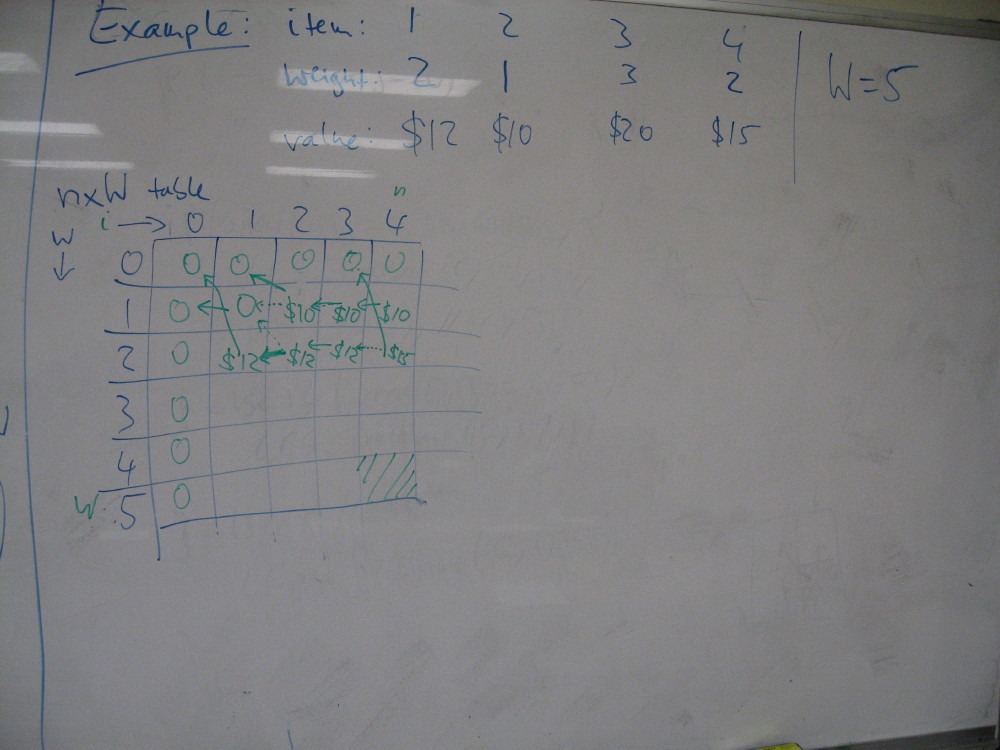 Example: item: 1 2 3 4
weight: 2 1 3 2 W=5
value: $12 $10 $20 $15
nxW table
n
i → 0 1 2 3 4
w ↓
0 0 0 0 0 0
1 0 0 $10 $10 $10
2 0 $12 $12 $12 $15
3 0
4 0
W 5 0